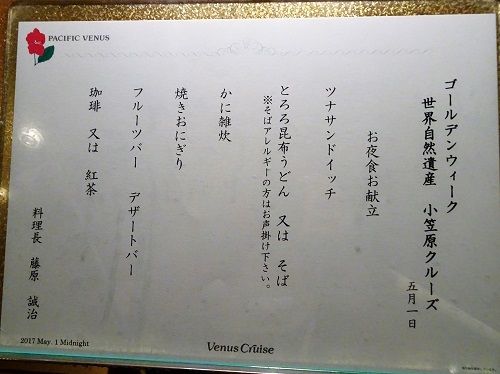 PACIFIC VENUS
ゴールデンウィーク
世界自然遺産 小笠原クルーズ
五月一日
お夜食お献立
ツナサンドイッチ
とろろ昆布うどん 又は そば
※そばアレルギーの方はお声掛け下さい。
かに雑炊
焼きおにぎり
フルーツバー デザートバー
珈琲 又は 紅茶
料理長 藤原 誠治
2017 May. 1 Midnight
Venus Cruise